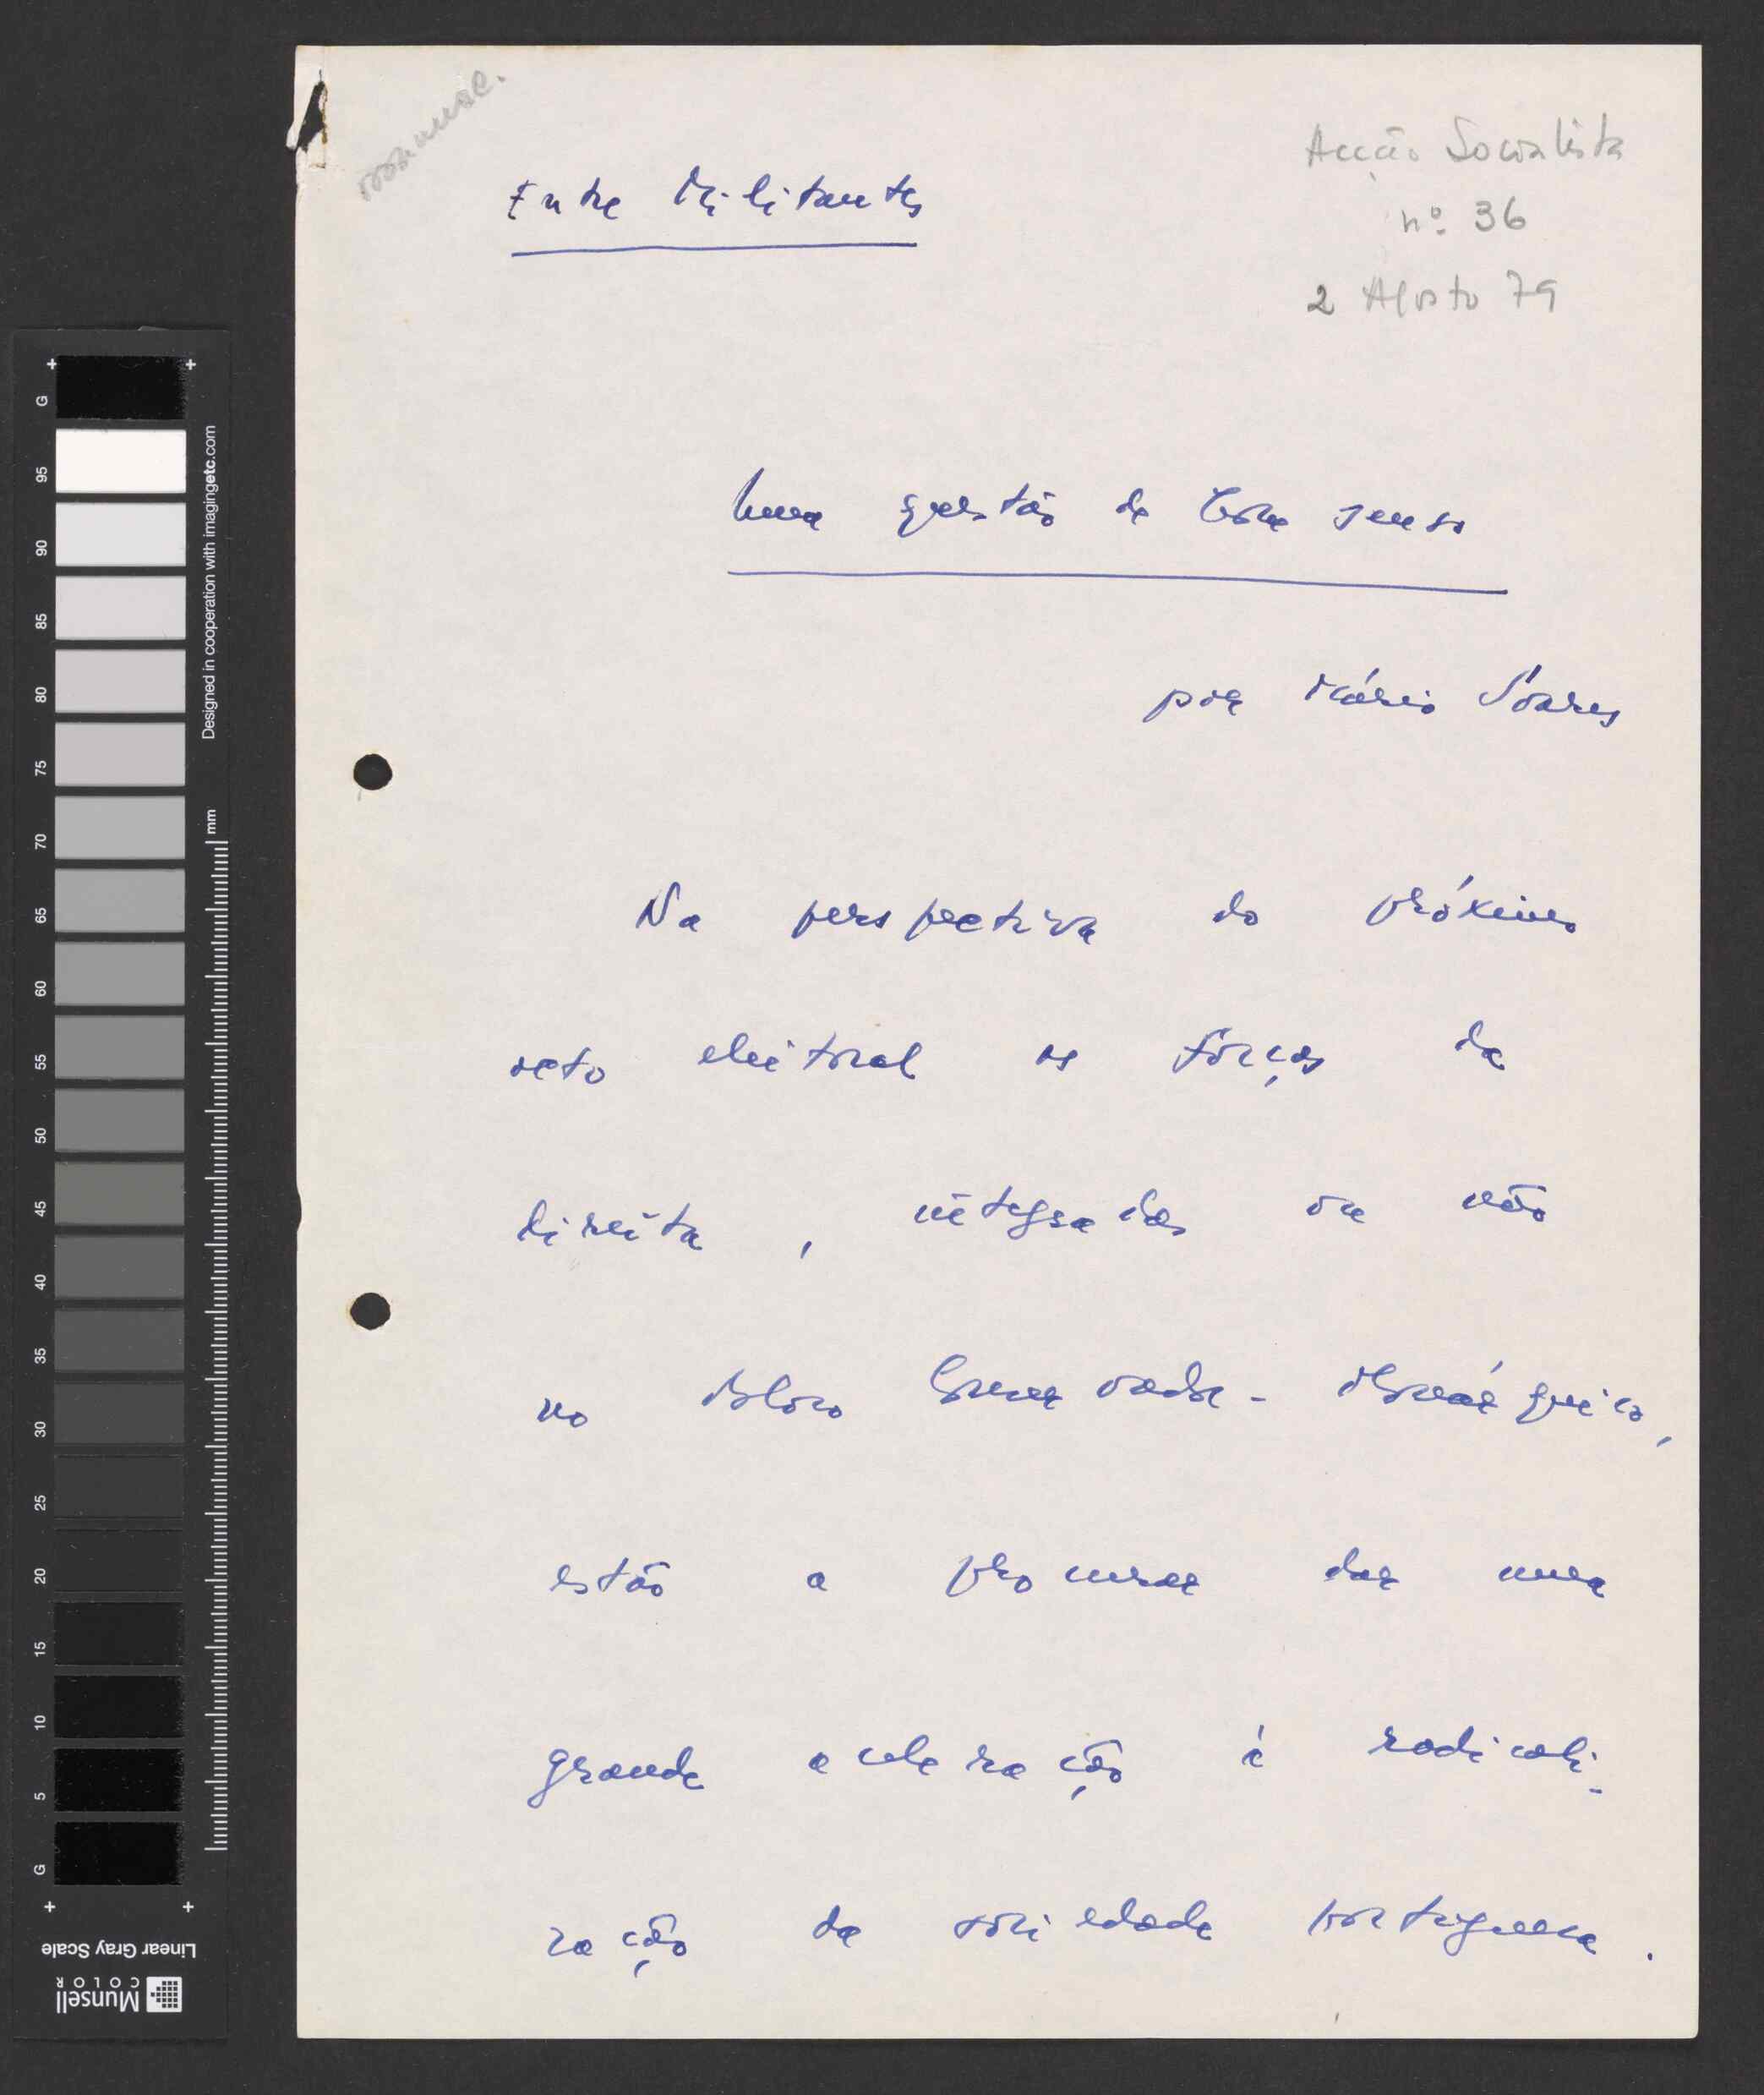 Acção Socialista
nº 36
2 Agosto 79
Entre Militantes
Uma questão de bom senso
por Mário Soares
Na perspectiva do próximo
acto eleitoral as forças da
direita, integradas ou não
no Bloco Conservador-Monárquico,
estão a procurar dar uma
grande aceleração à radicali-
zação da sociedade portuguesa.
G
95
90
85
80
75
70
65
60
55
50
45
40
35
30
25
20
15
10
5
G
Designed in cooperation with imagingetc.com
mm
Linear Gray Scale
Munsell
COLOR